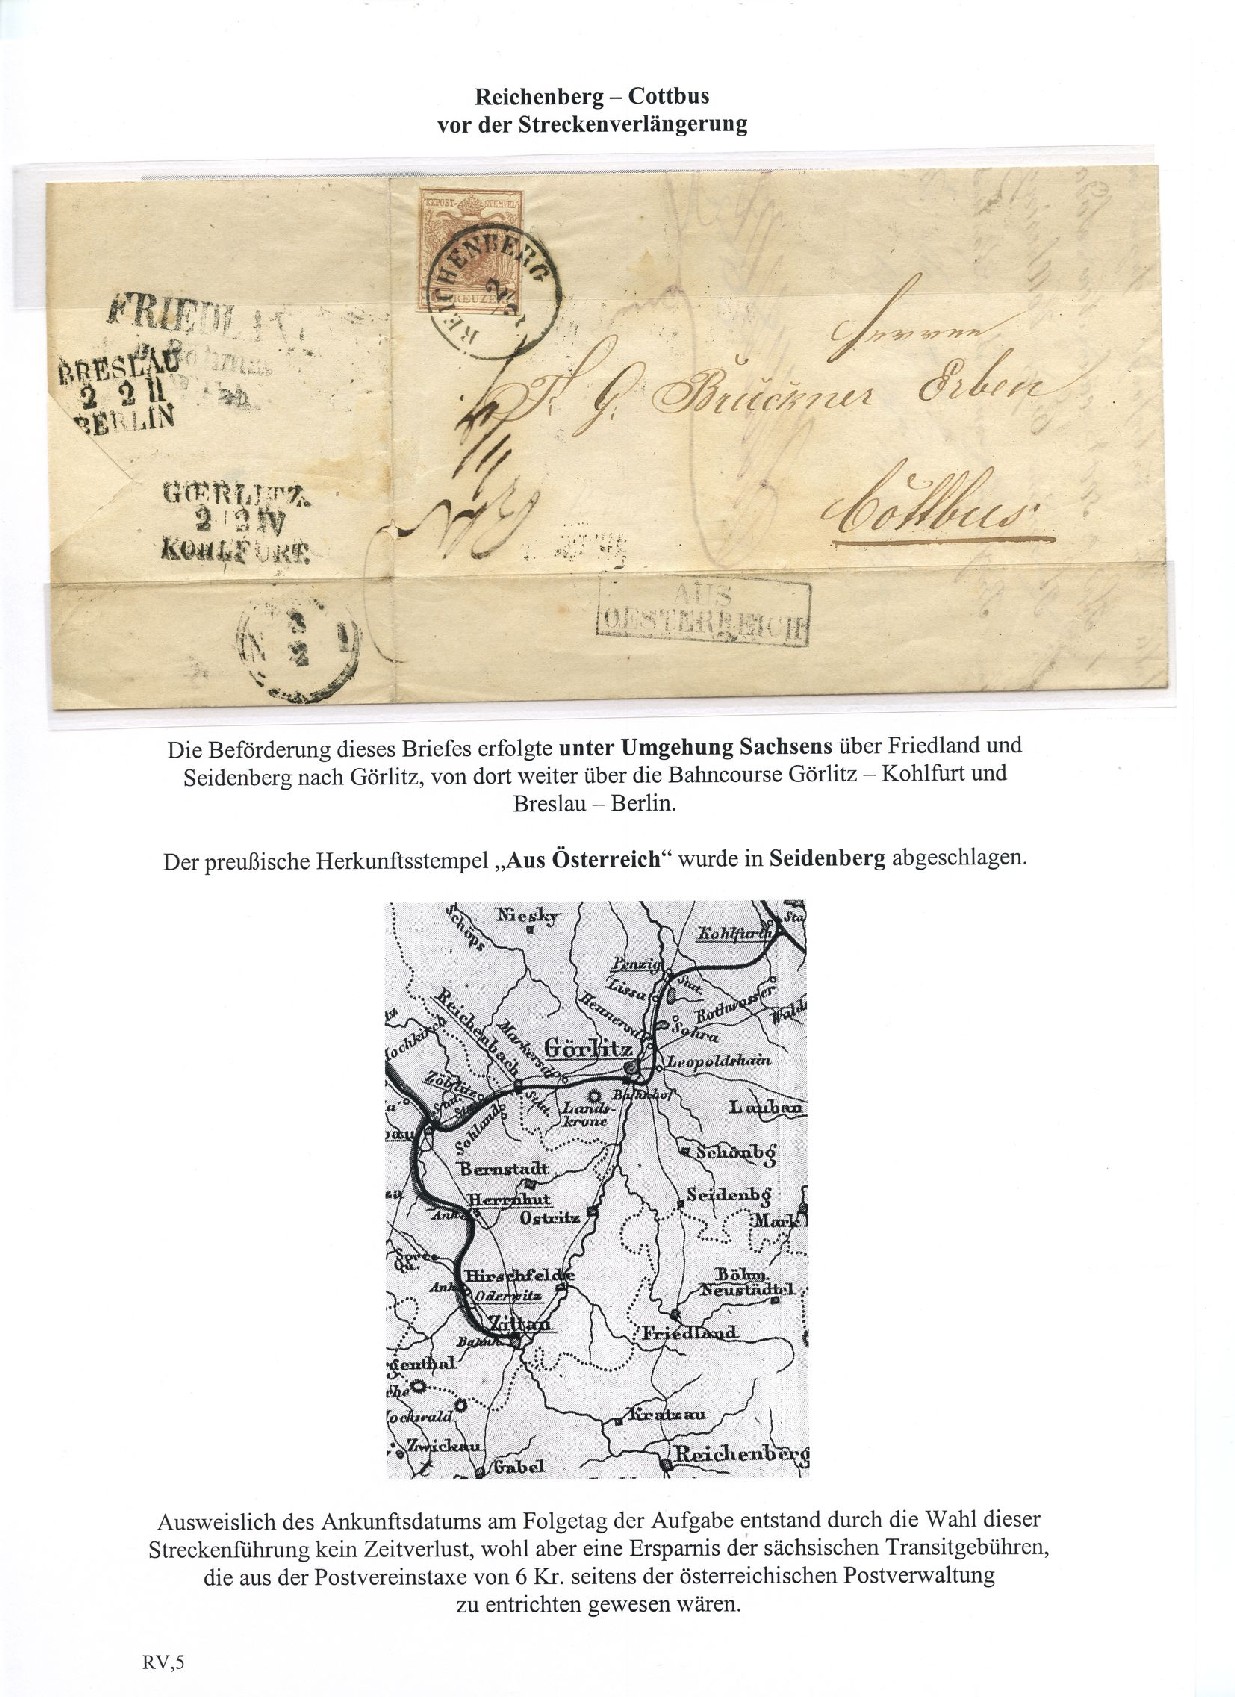 Reichenberg – Cottbus
vor der Streckenverlängerung
KREUZER
REICHENBERG
2/2
FRIEDLAND
BRESLAU
2 2 II
BERLIN
GŒRLITZ.
2 2 IV
KOHLFURT.
3
2
Herren
F. G. Brückner Erben
Cottbus
AUS
OESTERREICH
Die Beförderung dieses Briefes erfolgte unter Umgehung Sachsens über Friedland und
Seidenberg nach Görlitz, von dort weiter über die Bahncourse Görlitz – Kohlfurt und
Breslau – Berlin.
Der preußische Herkunftsstempel „Aus Österreich“ wurde in Seidenberg abgeschlagen.
Schöps
Niesky
Sta
Kohlfurth
Penzig
Stat.
Lissa
Hennersd
Rothwasser
Wald
Sohra
Reichenbach
Markersd
Hochkirch
Görlitz
Leopoldshain
Zöblitz
Bahnhof
Lands-
krone
Lauban
Sohland
Schönbg
Bernstadt
Seidenbg
Herrnhut
Ostritz
Mark
Spree
Qu.
Hirschfelde
Oderwitz
Böhm.
Neustädtel
Zittau
Bahnh.
Friedland
genthal
Hochwald
Kratzau
Zwickau
Gabel
Reichenberg
Ausweislich des Ankunftsdatums am Folgetag der Aufgabe entstand durch die Wahl dieser
Streckenführung kein Zeitverlust, wohl aber eine Ersparnis der sächsischen Transitgebühren,
die aus der Postvereinstaxe von 6 Kr. seitens der österreichischen Postverwaltung
zu entrichten gewesen wären.
RV,5